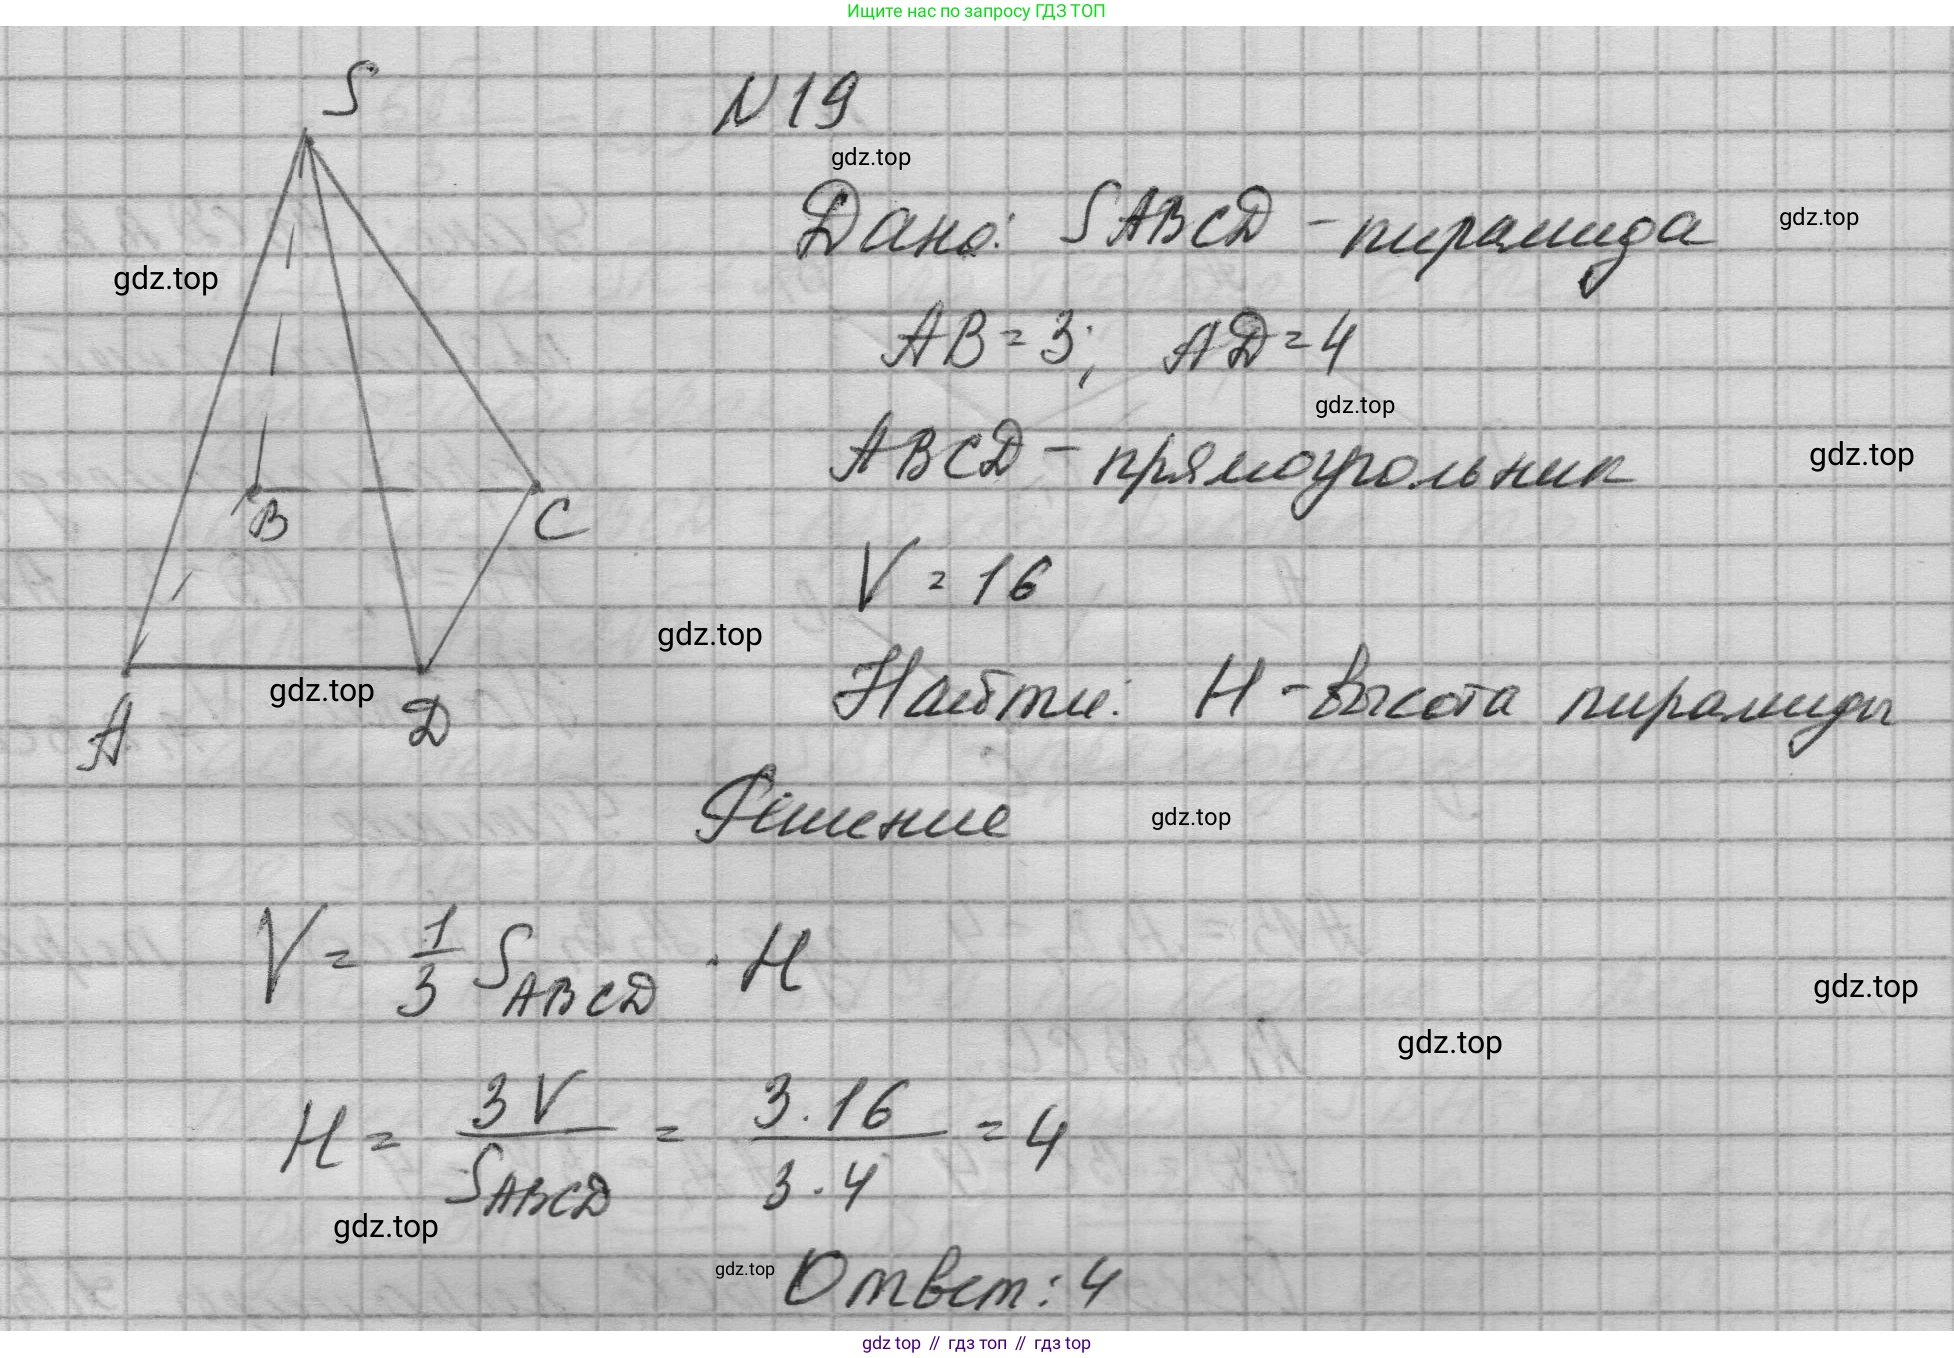 Ищите нас по запросу ГДЗ ТОП
S
N19
gdz.top
Дано: SABCD - пирамида
gdz.top
gdz.top
AB = 3; AD = 4
gdz.top
ABCD - прямоугольник
gdz.top
B
C
V = 16
gdz.top
Найти: H - высота пирамиды
gdz.top
A
D
Решение
gdz.top
V = 1/3 S_ABCD · H
gdz.top
gdz.top
H = 3V/S_ABCD = 3·16/3·4 = 4
gdz.top
gdz.top
Ответ: 4
gdz top // гдз топ // гдз top